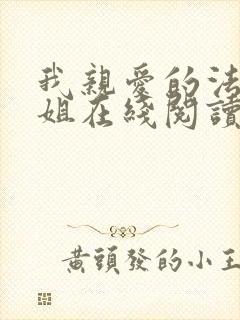 我親愛的法
姐在綫閱讀
黃頭發的小王